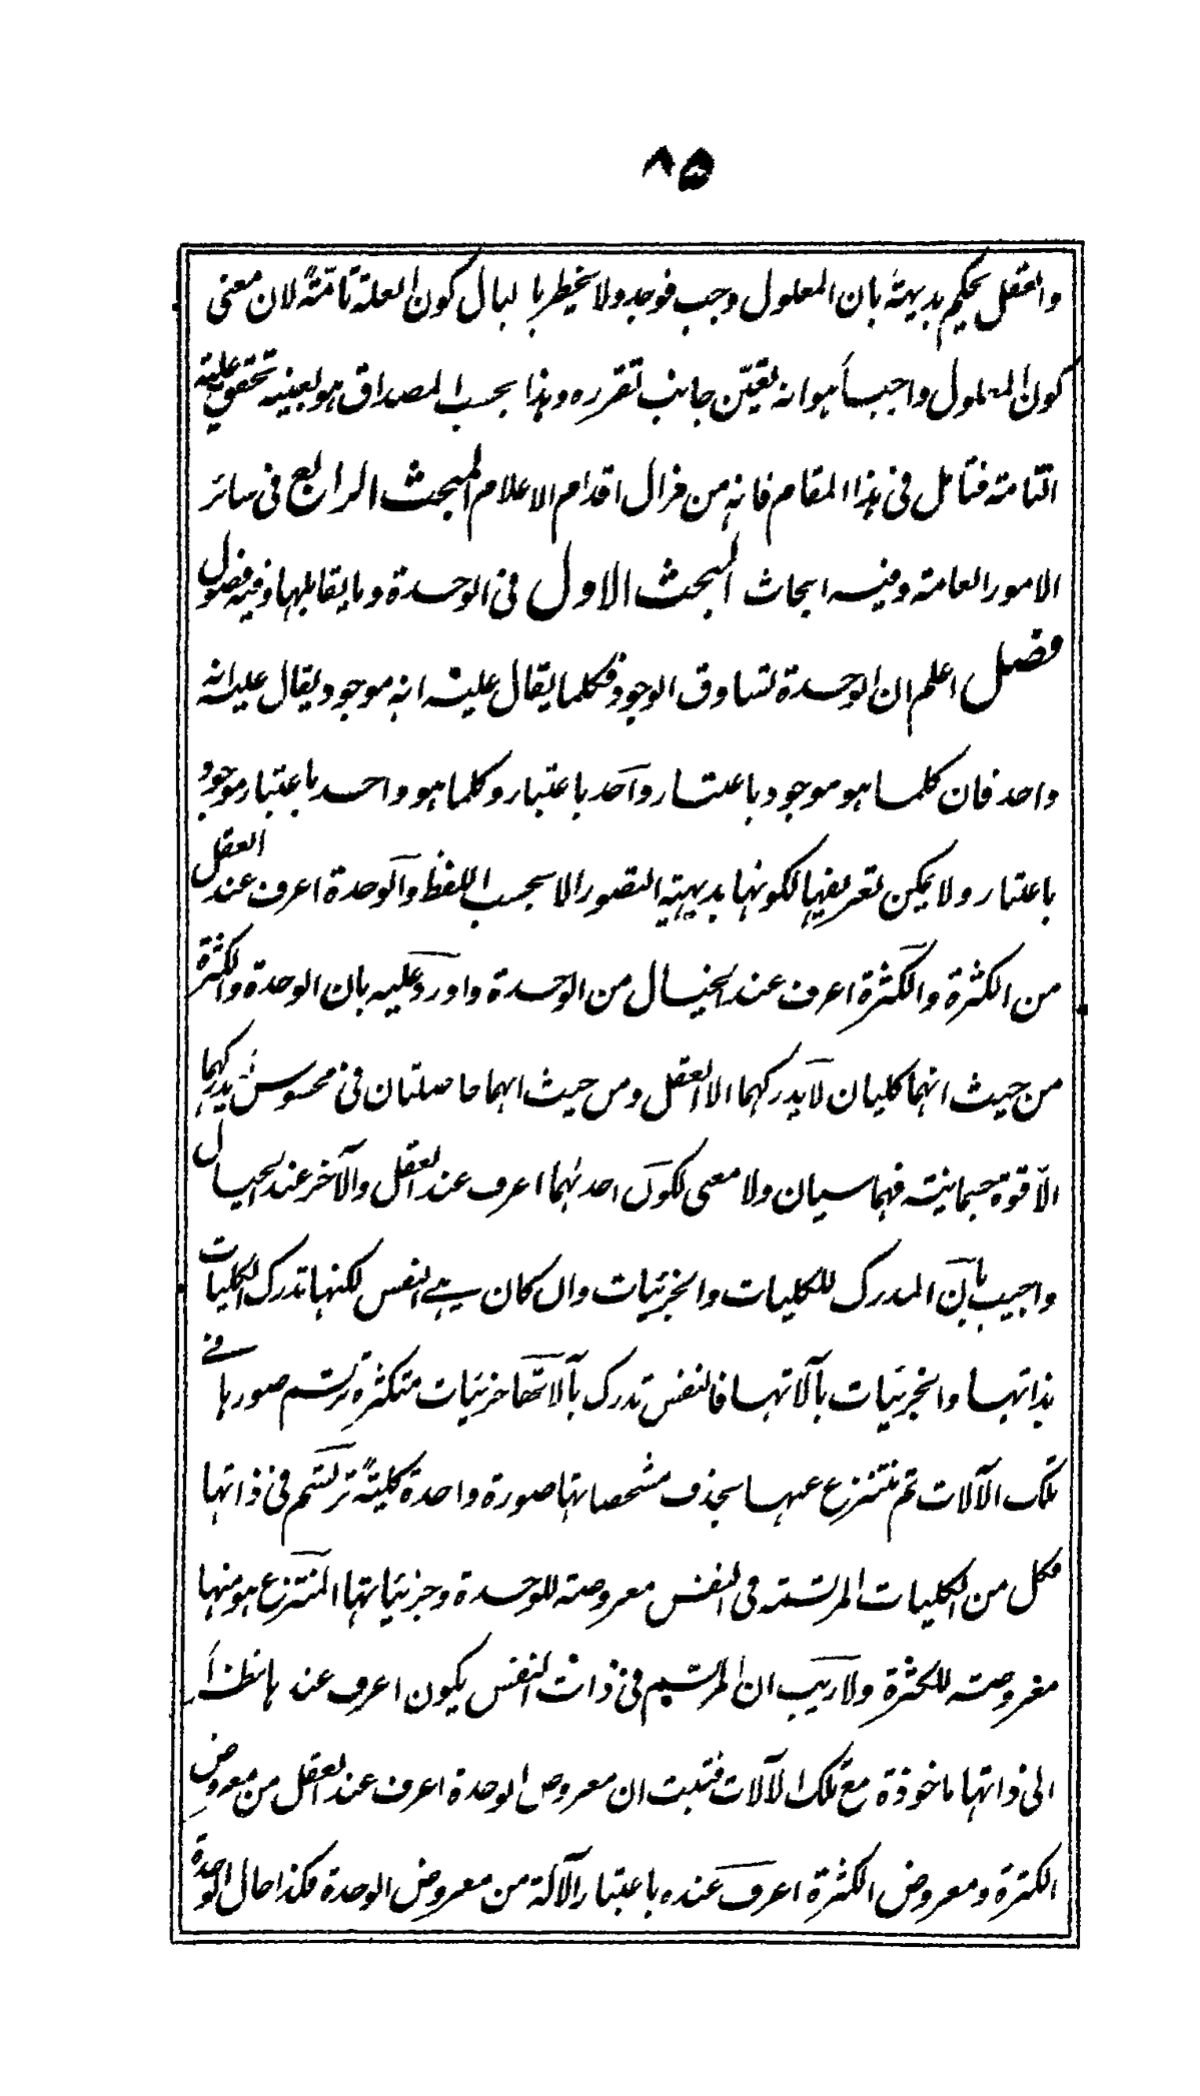 ٨٥
والعقل يحكم بديهة بان المعلول وجب فوجد ولا يخطر بالبال كون العلة تامّةً لان معنى
كون المعلول واجباً هو انه يتعيّن جانب تقرره وهذا بحسب المصداق هو بعينه تحقق علته
التامة فتامل فى هذا المقام فانه من مزال اقدام الاعلام المبحث الرابع فى سائر
الامور العامة وفيه ابحاث المبحث الاول فى الوحدة وما يقابلها وفيه فصول
فصل اعلم ان الوحدة تساوق الوجود فكلما يقال عليه انه موجود يقال عليه انه
واحد فان كلما هو موجود باعتبار واحد باعتبار وكلما هو واحد باعتبار موجود
باعتبار ولا يمكن تعريفها لكونها بديهية التصور الا بحسب اللفظ والوحدة اعرف عند العقل
من الكثرة والكثرة اعرف عند الخيال من الوحدة واورد عليه بان الوحدة والكثرة
من حيث انهما كليان لا يدركهما الا العقل ومن حيث انهما حاصلتان فى محسوس لا يدركهما
الّا قوة جسمانية فهما سيان ولا معنى لكون احدهما اعرف عند العقل والآخر عند الخيال
واجيب بان المدرك للكليات والجزئيات وان كان هى النفس لكنها تدرك الكليات
بذاتها والجزئيات بآلاتها فالنفس تدرك بآلاتها جزئيات متكثرة ترتسم صورها فى
تلك الآلات ثم تنتزع عنها بحذف مشخصاتها صورة واحدة كليةً ترتسم فى ذاتها
فكل من الكليات المرتسمة فى النفس معروضة للوحدة وجزئياتها المنتزع هو منها
معروضة للكثرة ولا ريب ان المرتسم فى ذات النفس يكون اعرف عندها نظراً
الى ذاتها ماخوذة مع تلك الآلات فثبت ان معروض الوحدة اعرف عند العقل من معروض
الكثرة ومعروض الكثرة اعرف عنده باعتبار الآلة من معروض الوحدة فكذا حال الوحدة